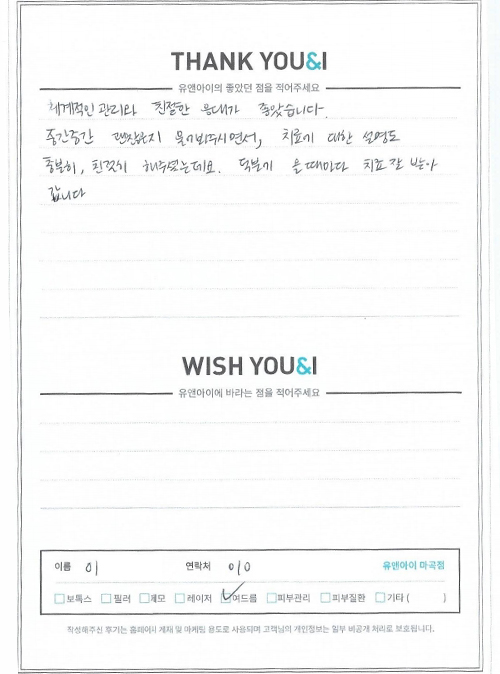 THANK YOU&I
유앤아이의 좋았던 점을 적어주세요
체계적인 관리와 친절한 응대가 좋았습니다.
중간중간 괜찮은지 물어봐주시면서, 치료에 대한 설명도
충분히, 친절히 해주셨는데요. 덕분에 올 때마다 치료 잘 받아
갑니다
WISH YOU&I
유앤아이에 바라는 점을 적어주세요
이름 이 연락처 010 유앤아이 마곡점
보톡스 필러 제모 레이저 여드름 피부관리 피부질환 기타 ( )
작성해주신 후기는 홈페이지 게재 및 마케팅 용도로 사용되며 고객님의 개인정보는 일부 비공개 처리로 보호됩니다.